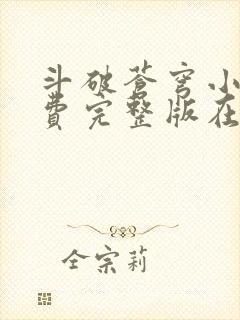 斗破苍穹小
费完整版在
全宗莉